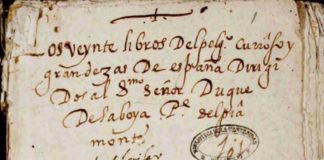 Los veynte libros Del pelg.º Curioso y
grandezas De españa Dirigi
Dos al S.mo Señor Duque
De Saboya P.e del pia
monte